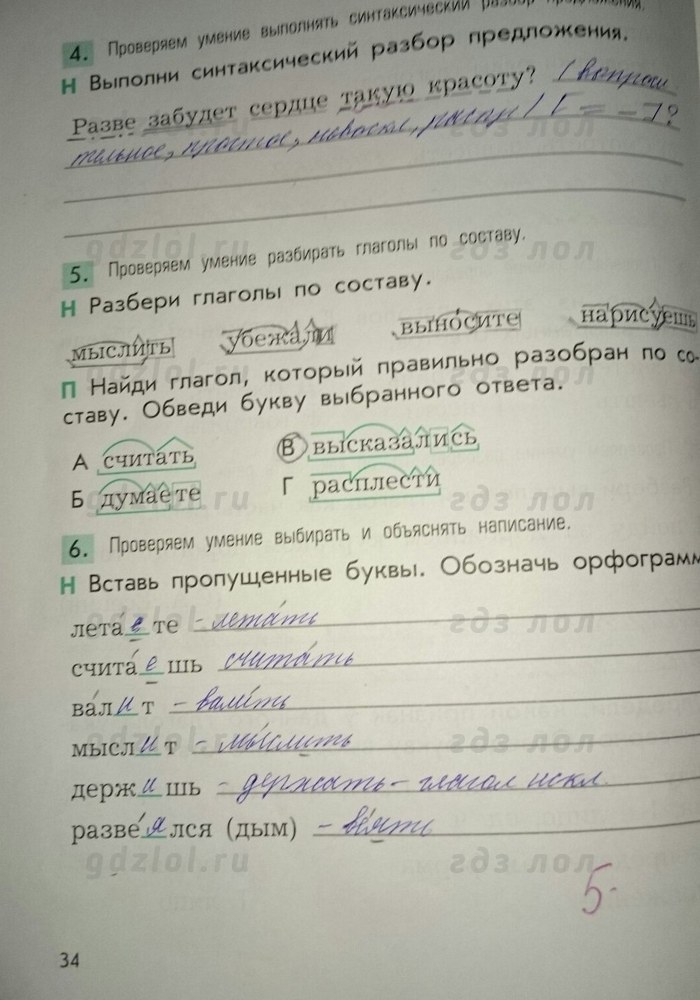 4. Проверяем умение выполнять синтаксический разбор предложения.
Н Выполни синтаксический разбор предложения.
Разве забудет сердце такую красоту? (вопроси
тельное, простое,
5. Проверяем умение разбирать глаголы по составу.
Н Разбери глаголы по составу.
мыслить убежали выносите нарисуешь
П Найди глагол, который правильно разобран по со-
ставу. Обведи букву выбранного ответа.
А считать В высказались
Б думаете Г расплести
6. Проверяем умение выбирать и объяснять написание.
Н Вставь пропущенные буквы. Обозначь орфограмм
летаете - летать
считаешь считать
валит - валить
мыслит - мыслить
держишь - держать - глагол искл.
развеялся (дым) - веять
5-
34
gdzlol.ru гдз лол
gdzlol.ru гдз лол
гдз лол
gdzlol.ru гдз лол
гдз лол
gdzlol.ru гдз лол
gdzlol.ru гдз лол